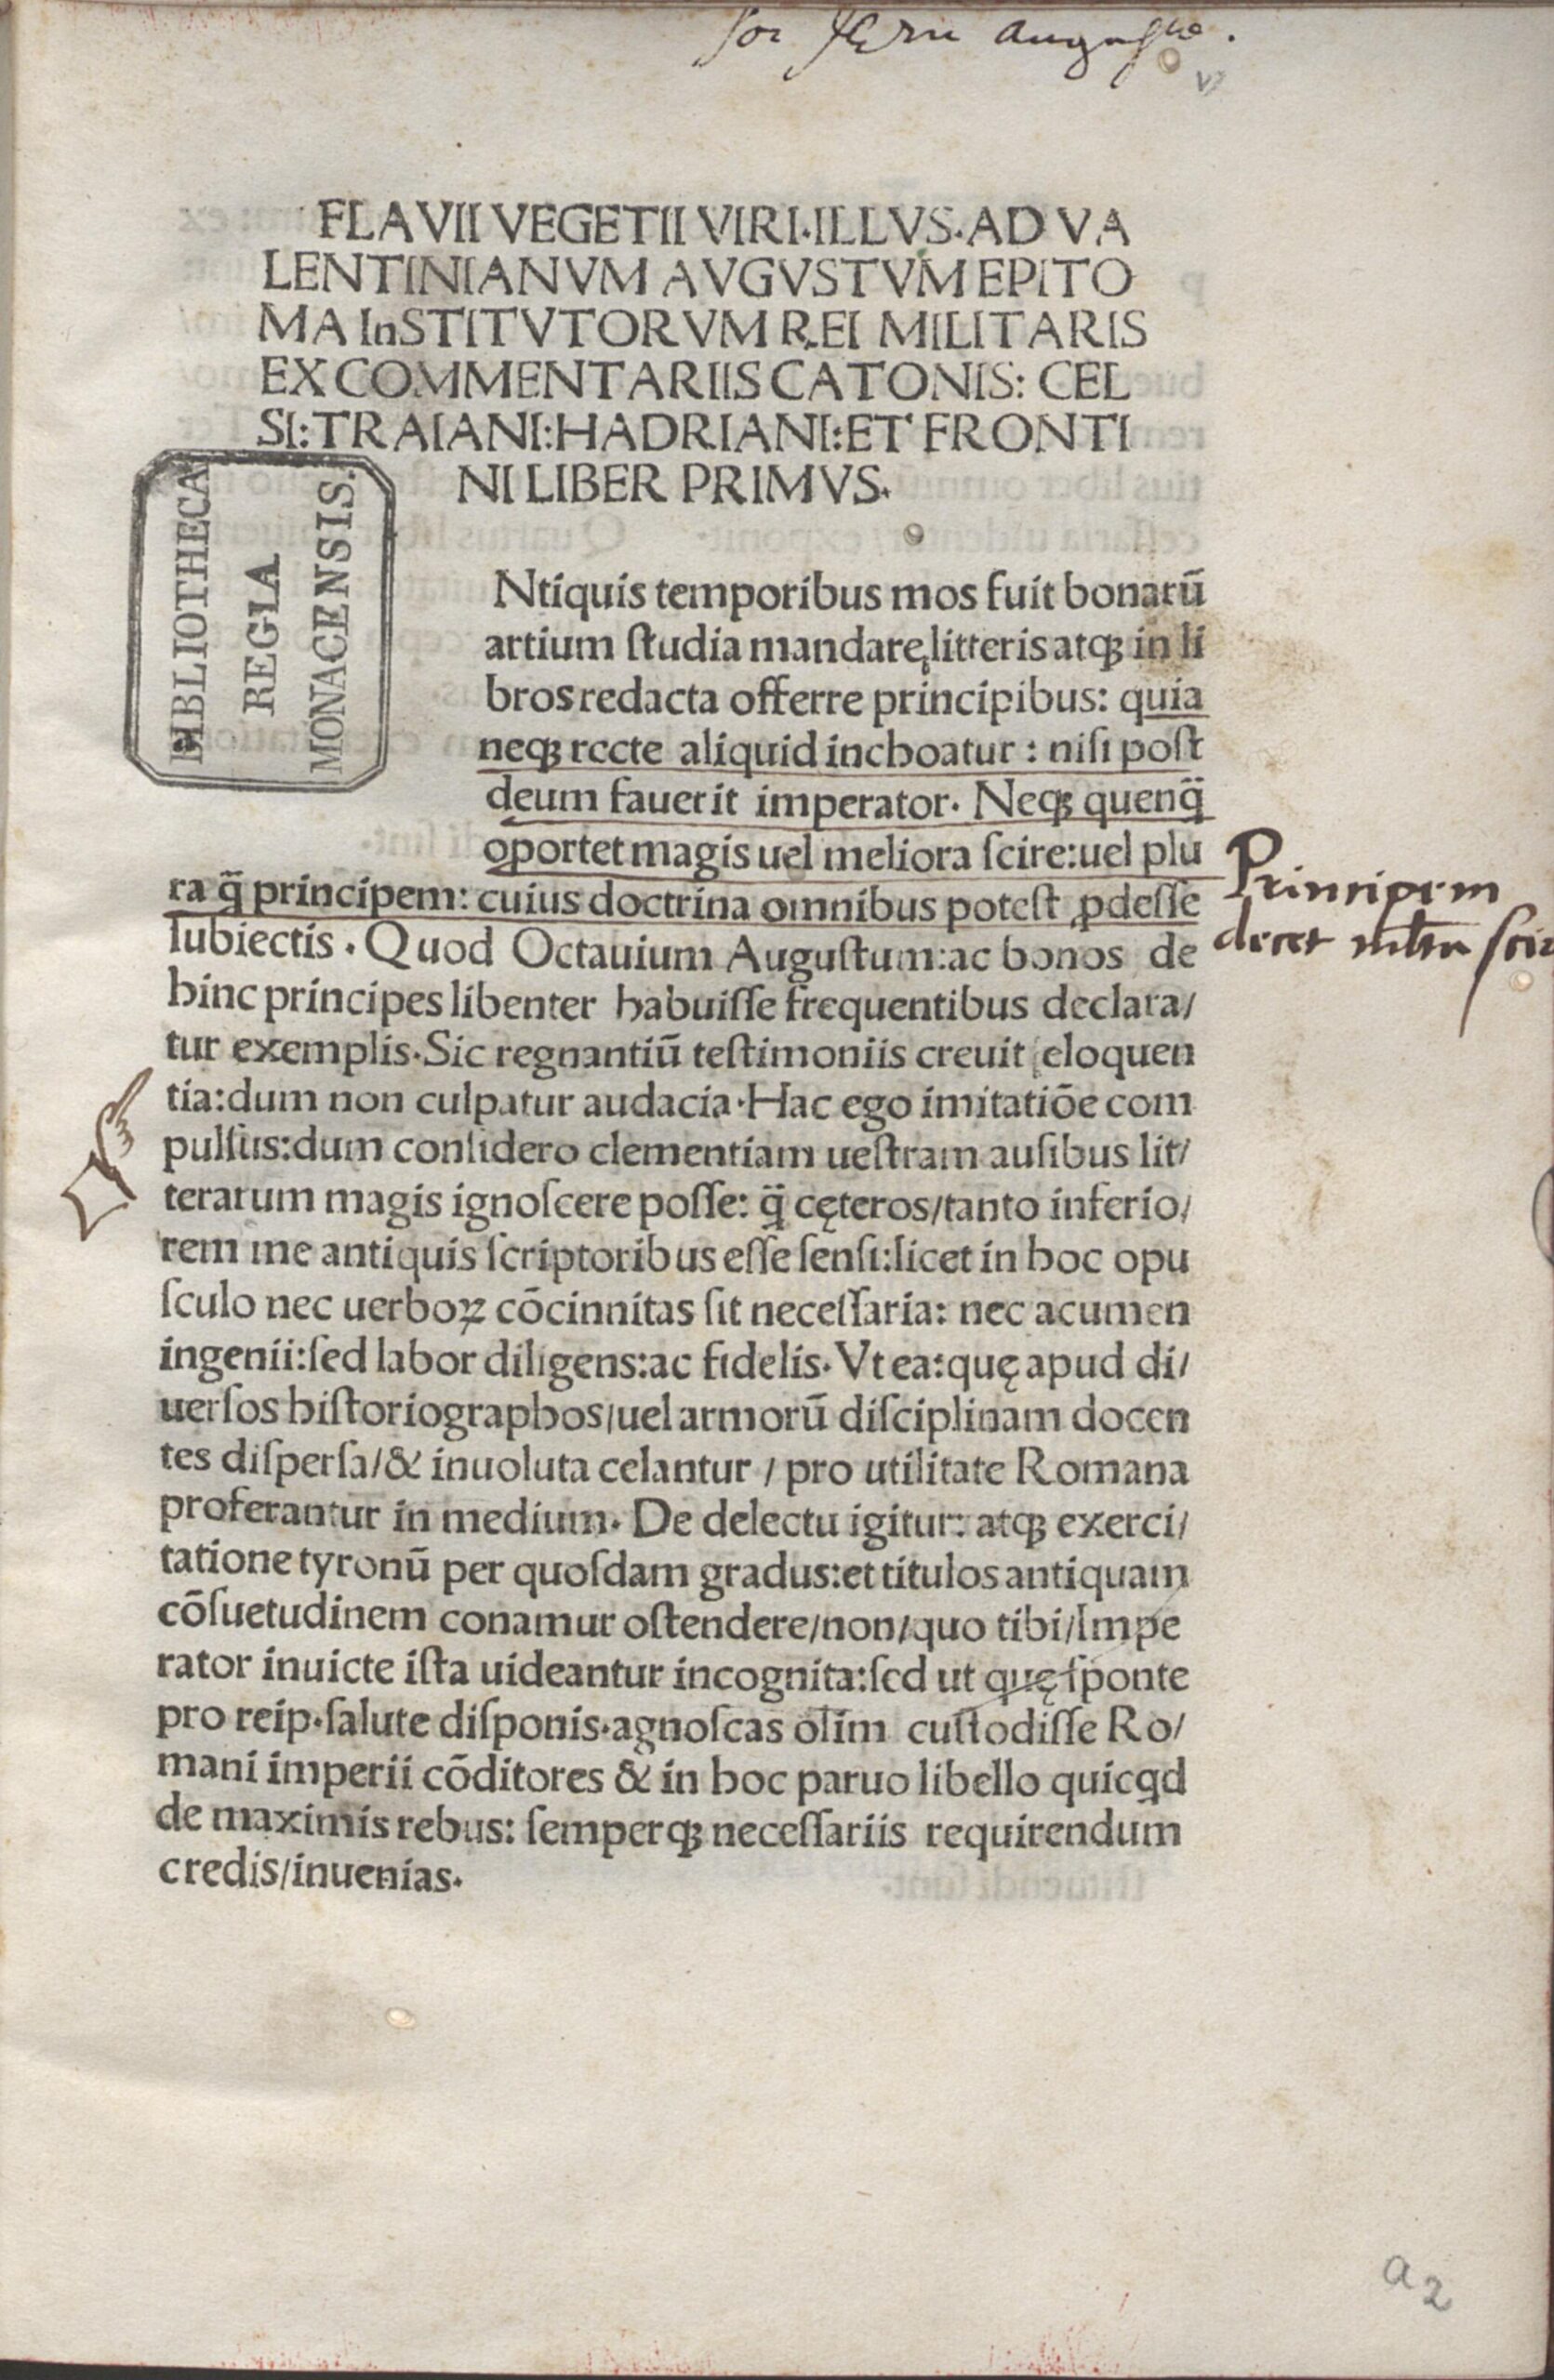 FLAVII VEGETII VIRI.ILLVS.AD VA
LENTINIANVM AVGVSTVM EPITO
MA InSTITVTORVM REI MILITARIS
EX COMMENTARIIS CATONIS: CEL
SI:TRAIANI:HADRIANI:ET FRONTI
NI LIBER PRIMVS.
BIBLIOTHECA
REGIA
MONACENSIS.
Ntiquis temporibus mos fuit bonarū
artium ſtudia mandare litteris atqꝫ in li
bros redacta offerre principibus: quia
neqꝫ recte aliquid inchoatur : niſi poſt
deum fauerit imperator. Neqꝫ quenq̄
oportet magis uel meliora ſcire:uel plu
ra q̄ principem: cuius doctrina omnibus poteſt ꝓdeſſe
ſubiectis. Quod Octauium Auguſtum:ac bonos de
hinc principes libenter habuiſſe frequentibus declara/
tur exemplis.Sic regnantiū teſtimoniis creuit eloquen
tia:dum non culpatur audacia.Hac ego imitatiōe com
pulſus:dum conſidero clementiam ueſtram auſibus lit/
terarum magis ignoſcere poſſe: q̄ cęteros/tanto inferio/
rem me antiquis ſcriptoribus eſſe ſenſi:licet in hoc opu
ſculo nec uerboꝝ cōcinnitas ſit neceſſaria: nec acumen
ingenii:ſed labor diligens:ac fidelis. Vt ea:quę apud di/
uerſos hiſtoriographos/uel armorū diſciplinam docen
tes diſperſa/& inuoluta celantur / pro utilitate Romana
proferantur in medium. De delectu igitur: atqꝫ exerci/
tatione tyronū per quoſdam gradus:et titulos antiquam
cōſuetudinem conamur oſtendere/non/quo tibi/Impe
rator inuicte iſta uideantur incognita:ſed ut quę ſponte
pro reip.ſalute diſponis.agnoſcas olim cuſtodiſſe Ro/
mani imperii cōditores & in hoc paruo libello quicqd
de maximis rebus: ſemperqꝫ neceſſariis requirendum
credis/inuenias.
Principem
decet
a2